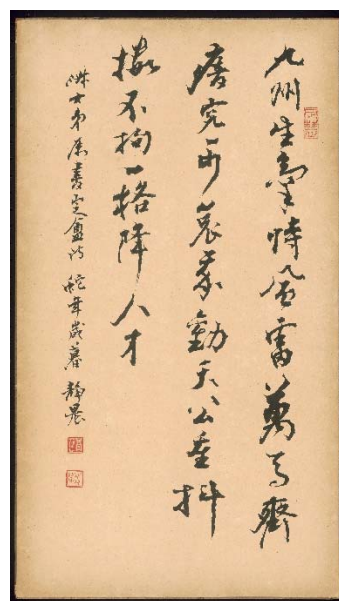 九州生氣恃風雷萬马齊
瘖究可哀我勸天公重抖
擻不拘一格降人才
女弟属書定盦诗 蛇年歲暮 静農